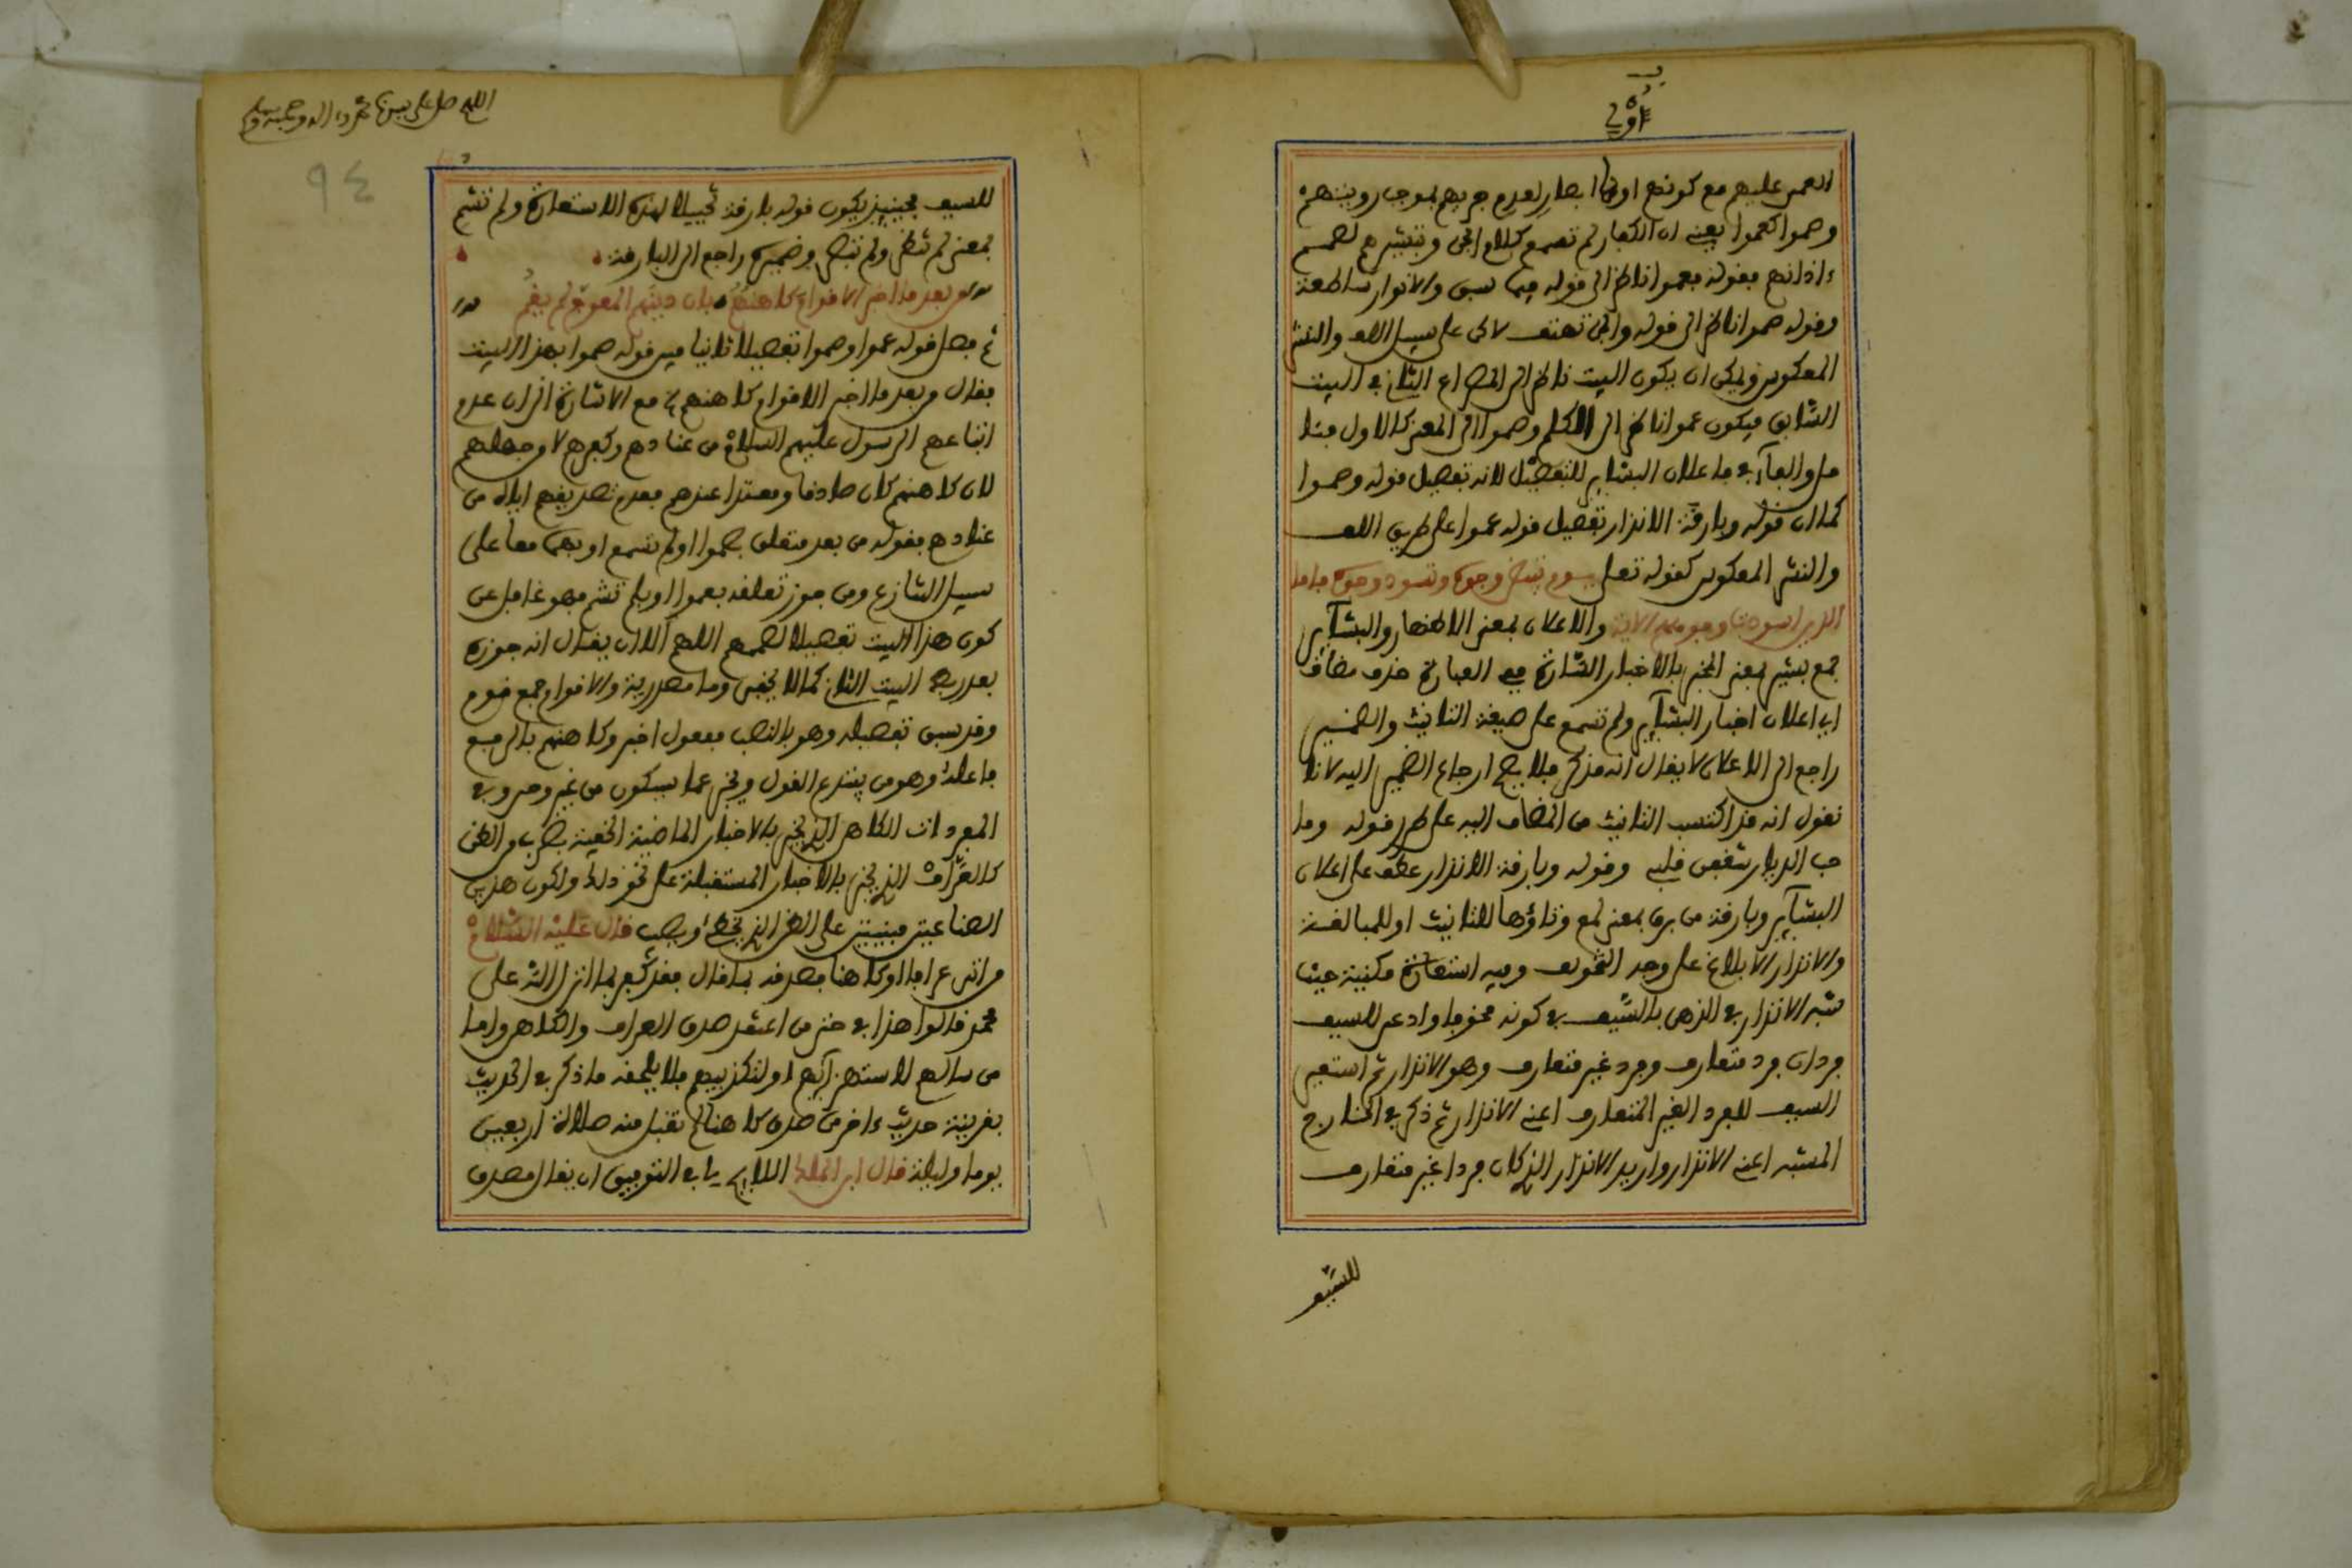 العمى عليهم مع كونهم اولى ابصار لعدم جريهم بموجب رويتهم
وصموا كعموا يعنى ان الكفار لم تسمع كلام الجن وتبشيرهم لصمم
ءاذانهم فقوله فعموا ناظر الى قوله فيما سبق والانوار ساطعة
وقوله صموا ناظر الى قوله والجن تهتف لاكن على سبيل اللف والنشر
المعكوس ويمكن ان يكون البيت ناظر الى المصراع الثانى فى البيت
السّابق فيكون عموا ناظر الى الكلم وصموا الى المعنى كالاول
والفآء فى فاعلان البشاير للتفصيل لانه تفصيل قوله وصموا
كما ان قوله وبارقة الانذار تفصيل قوله عموا على طريق اللف
والنشر المعكوس كقوله تعلى يوم تبيض وجوه وتسود وجوه فاما
الذين اسودت وجوههم الاية والاعلان بمعنى الاظهار والبشآير
جمع بشير بمعنى المخبر بالاخبار السّارة ففى العبارة حذف مضاف
اى اعلان اخبار البشآير ولم تسمع على صيغة التانيث والضمير
راجع الى الاعلان لا يقال انه مذكر فلا يصح ارجاع الضمير اليه لانا
نقول انه قد اكتسب التانيث من المضاف اليه على طرز قوله وما
حب الديار شغفن قلبى وقوله وبارقة الانذار عطف على اعلان
البشآير وبارقة من برق بمعنى لمع وتاؤها للتانيث او للمبالغة
والانذار الابلاغ على وجه التخويف وفيه استعارة مكنية حيث
شبه الانذار فى الذهن بالسّيف فى كونه مخوفا وادعى للسيف
فردان فرد متعارف وفرد غير متعارف وهو الانذار ثم استعير
السيف للفرد الغير المتعارف اعنى الانذار ثم ذكر فى الخارج
المشبه اعنى الانذار واريد الانذار الذى كان فردا غير متعارف
للسّيف
اللهم صل على سيدنا محمد وءاله وصحبه وسلم
٩٤
للسيف فحينيذ يكون قوله بارقة تخييلا لهذه الاستعارة ولم تشم
بمعنى لم تنظر ولم تبصر وضميره راجع الى البارقة
من بعد ما اخبر الاقوام كاهنهم بان دينهم المعوج لم يقم
ثم فصل قوله عموا وصموا تفصيلا ثانيا قوله صموا بهذا البيت
فقال من بعد ما اخبر الاقوام كاهنهم الخ مع الاشارة الى ان عدم
اتباعهم الرسول عليهم السلام من عنادهم وكفرهم لا من جهلهم
لان كاهنهم كان صادقا ومعتبرا عندهم فعدم تصديقهم اياه من
عنادهم فقوله من بعد متعلق بصموا او لم تسمع او بهما معا على
سبيل التنازع ومن جوز تعلقه بعموا او بلم تشم فهو غافل عن
كون هذا البيت تفصيلا لصممهم اللهم الا ان يقال انه جوزه
بعد البيت الثانى كما لا يخفى وما مصدرية والاقوام جمع قوم
وقد سبق تفصيله وهو بالنصب مفعول اخبر وكاهنهم بالرفع
فاعله وهو من يبتدع القول ويخبر عما سيكون من غير وحى وفى
المفردات الكاهن الذى يخبر بالاخبار الماضية الخفية بضرب من الظن
كالعرّاف الذى يخبر بالاخبار المستقبلة على نحو ذلك ولكون هذين
الصناعتين مبنيتين على الظن الذى يخطى ويصيب قال عليه السّلام
من اتى عرافا او كاهنا فصدقه بما قال فقد كفر بما انزل اللّه على
محمد قالوا هذا فى حق من اعتقد صدق العراف والكاهن واما
من سالهم لاستهزآيهم او لتكذيبهم فلا يلحقه ما ذكر فى الحديث
بقرينة حديث ءاخر من صدق كاهنا لم تقبل منه صلاة اربعين
يوما وليلة قال ابن الملك اللايق فى التوفيق ان يقال مصدق